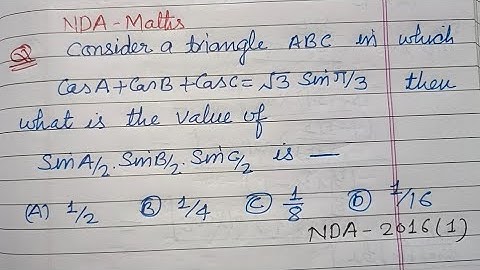 NDA - Maths
Q Consider a triangle ABC in which
CosA + CosB + CosC = √3 Sin π/3 then
what is the value of
SinA/2 . SinB/2 . SinC/2 is —
(A) 1/2 (B) 1/4 (C) 1/8 (D) 1/16
NDA - 2016(1)